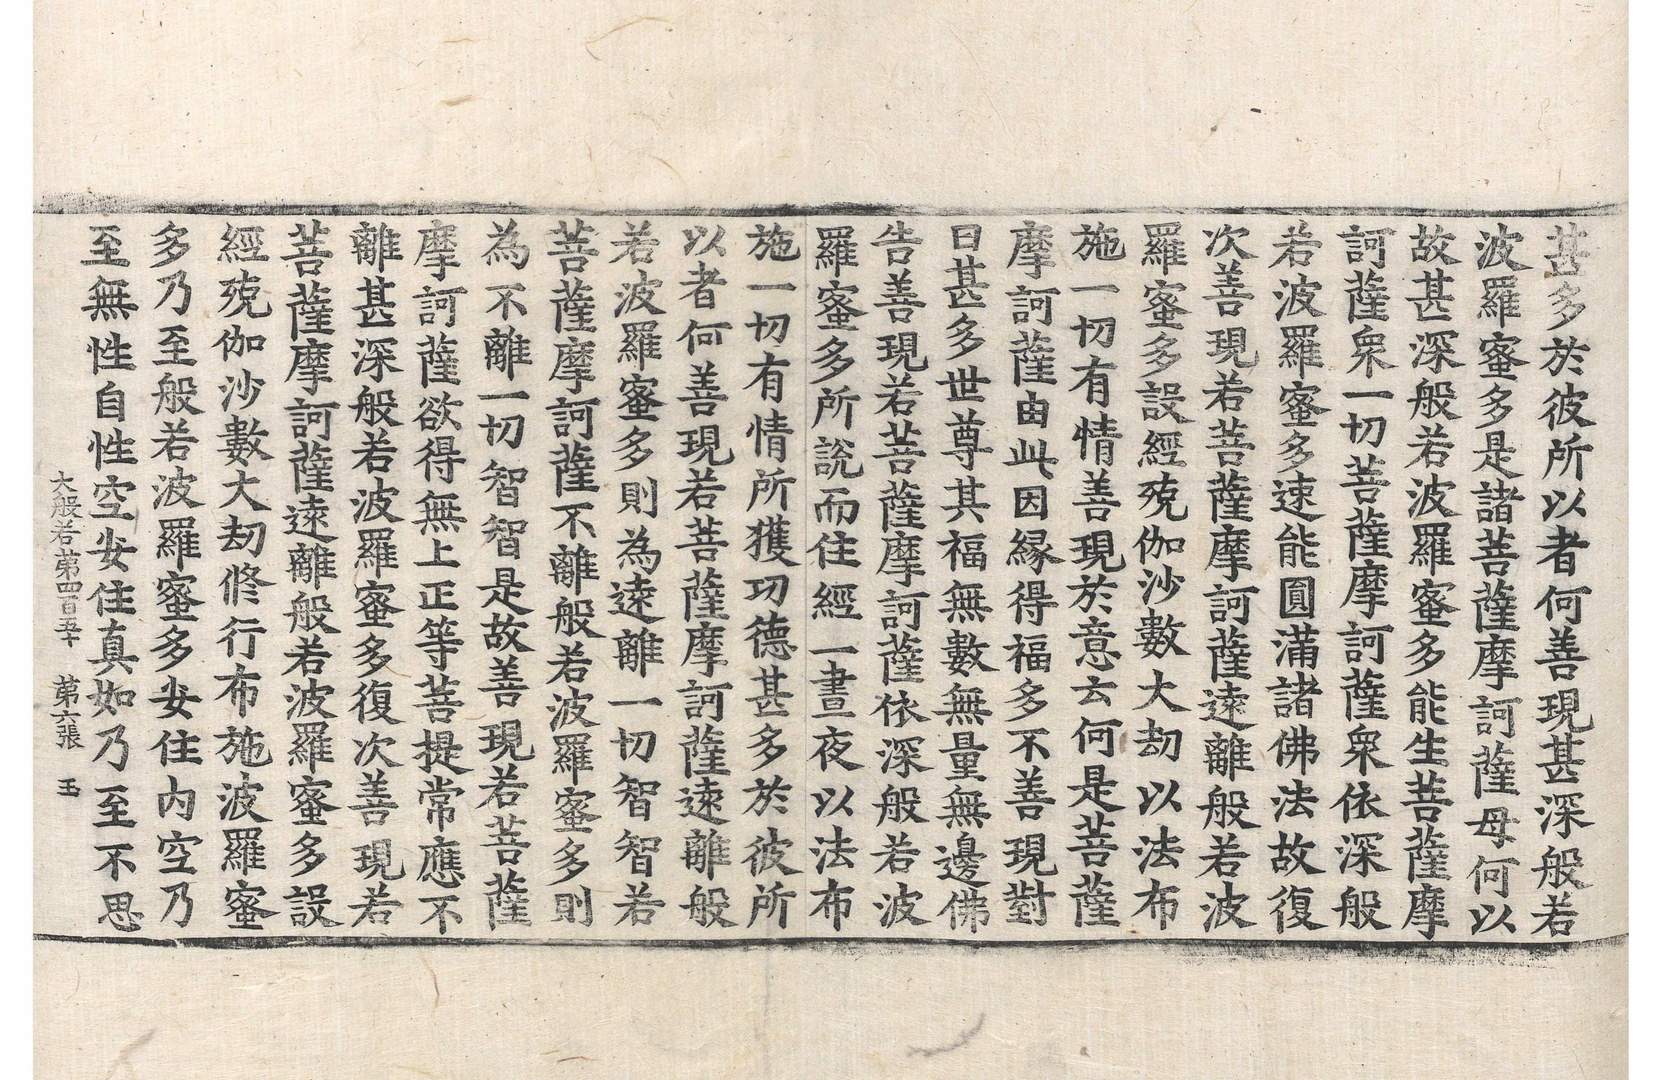 甚多於彼所以者何善現甚深般若
波羅蜜多是諸菩薩摩訶薩母何以
故甚深般若波羅蜜多能生菩薩摩
訶薩衆一切菩薩摩訶薩衆依深般
若波羅蜜多速能圓滿諸佛法故復
次善現若菩薩摩訶薩遠離般若波
羅蜜多設經殑伽沙數大劫以法布
施一切有情善現於意云何是菩薩
摩訶薩由此因緣得福多不善現對
曰甚多世尊其福無數無量無邊佛
告善現若菩薩摩訶薩依深般若波
羅蜜多所說而住經一晝夜以法布
施一切有情所獲功德甚多於彼所
以者何善現若菩薩摩訶薩遠離般
若波羅蜜多則為遠離一切智智若
菩薩摩訶薩不離般若波羅蜜多則
為不離一切智智是故善現若菩薩
摩訶薩欲得無上正等菩提常應不
離甚深般若波羅蜜多復次善現若
菩薩摩訶薩遠離般若波羅蜜多設
經殑伽沙數大劫修行布施波羅蜜
多乃至般若波羅蜜多安住內空乃
至無性自性空安住真如乃至不思
大般若第四百五十 第六張 玉